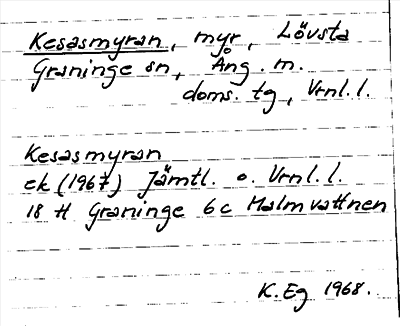 Kesasmyran, myr, Lövsta
Graninge sn, Ång. m.
doms. tg, Vrnl.l.
Kesasmyran
ek (1967) Jämtl. o. Vrnl.l.
18 H Graninge 6c Malmvattnen
K. Eg 1968.